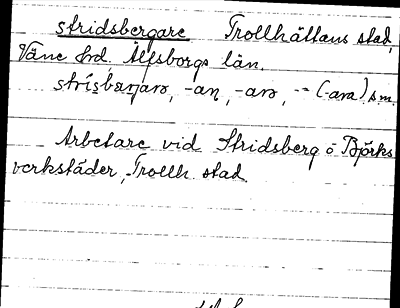 stridsbergare Trollhättans stad,
Väne hrd. Älfsborgs län.
-an, -arə, -- (-ara) sm.
Arbetare vid Stridsberg o Björks
verkstäder, Trollh. stad.